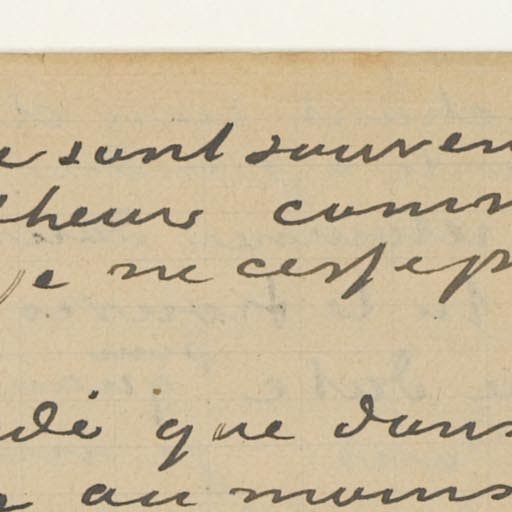 e sont souven
lheurs comm
je ne cesse p
dé que dans
au moins